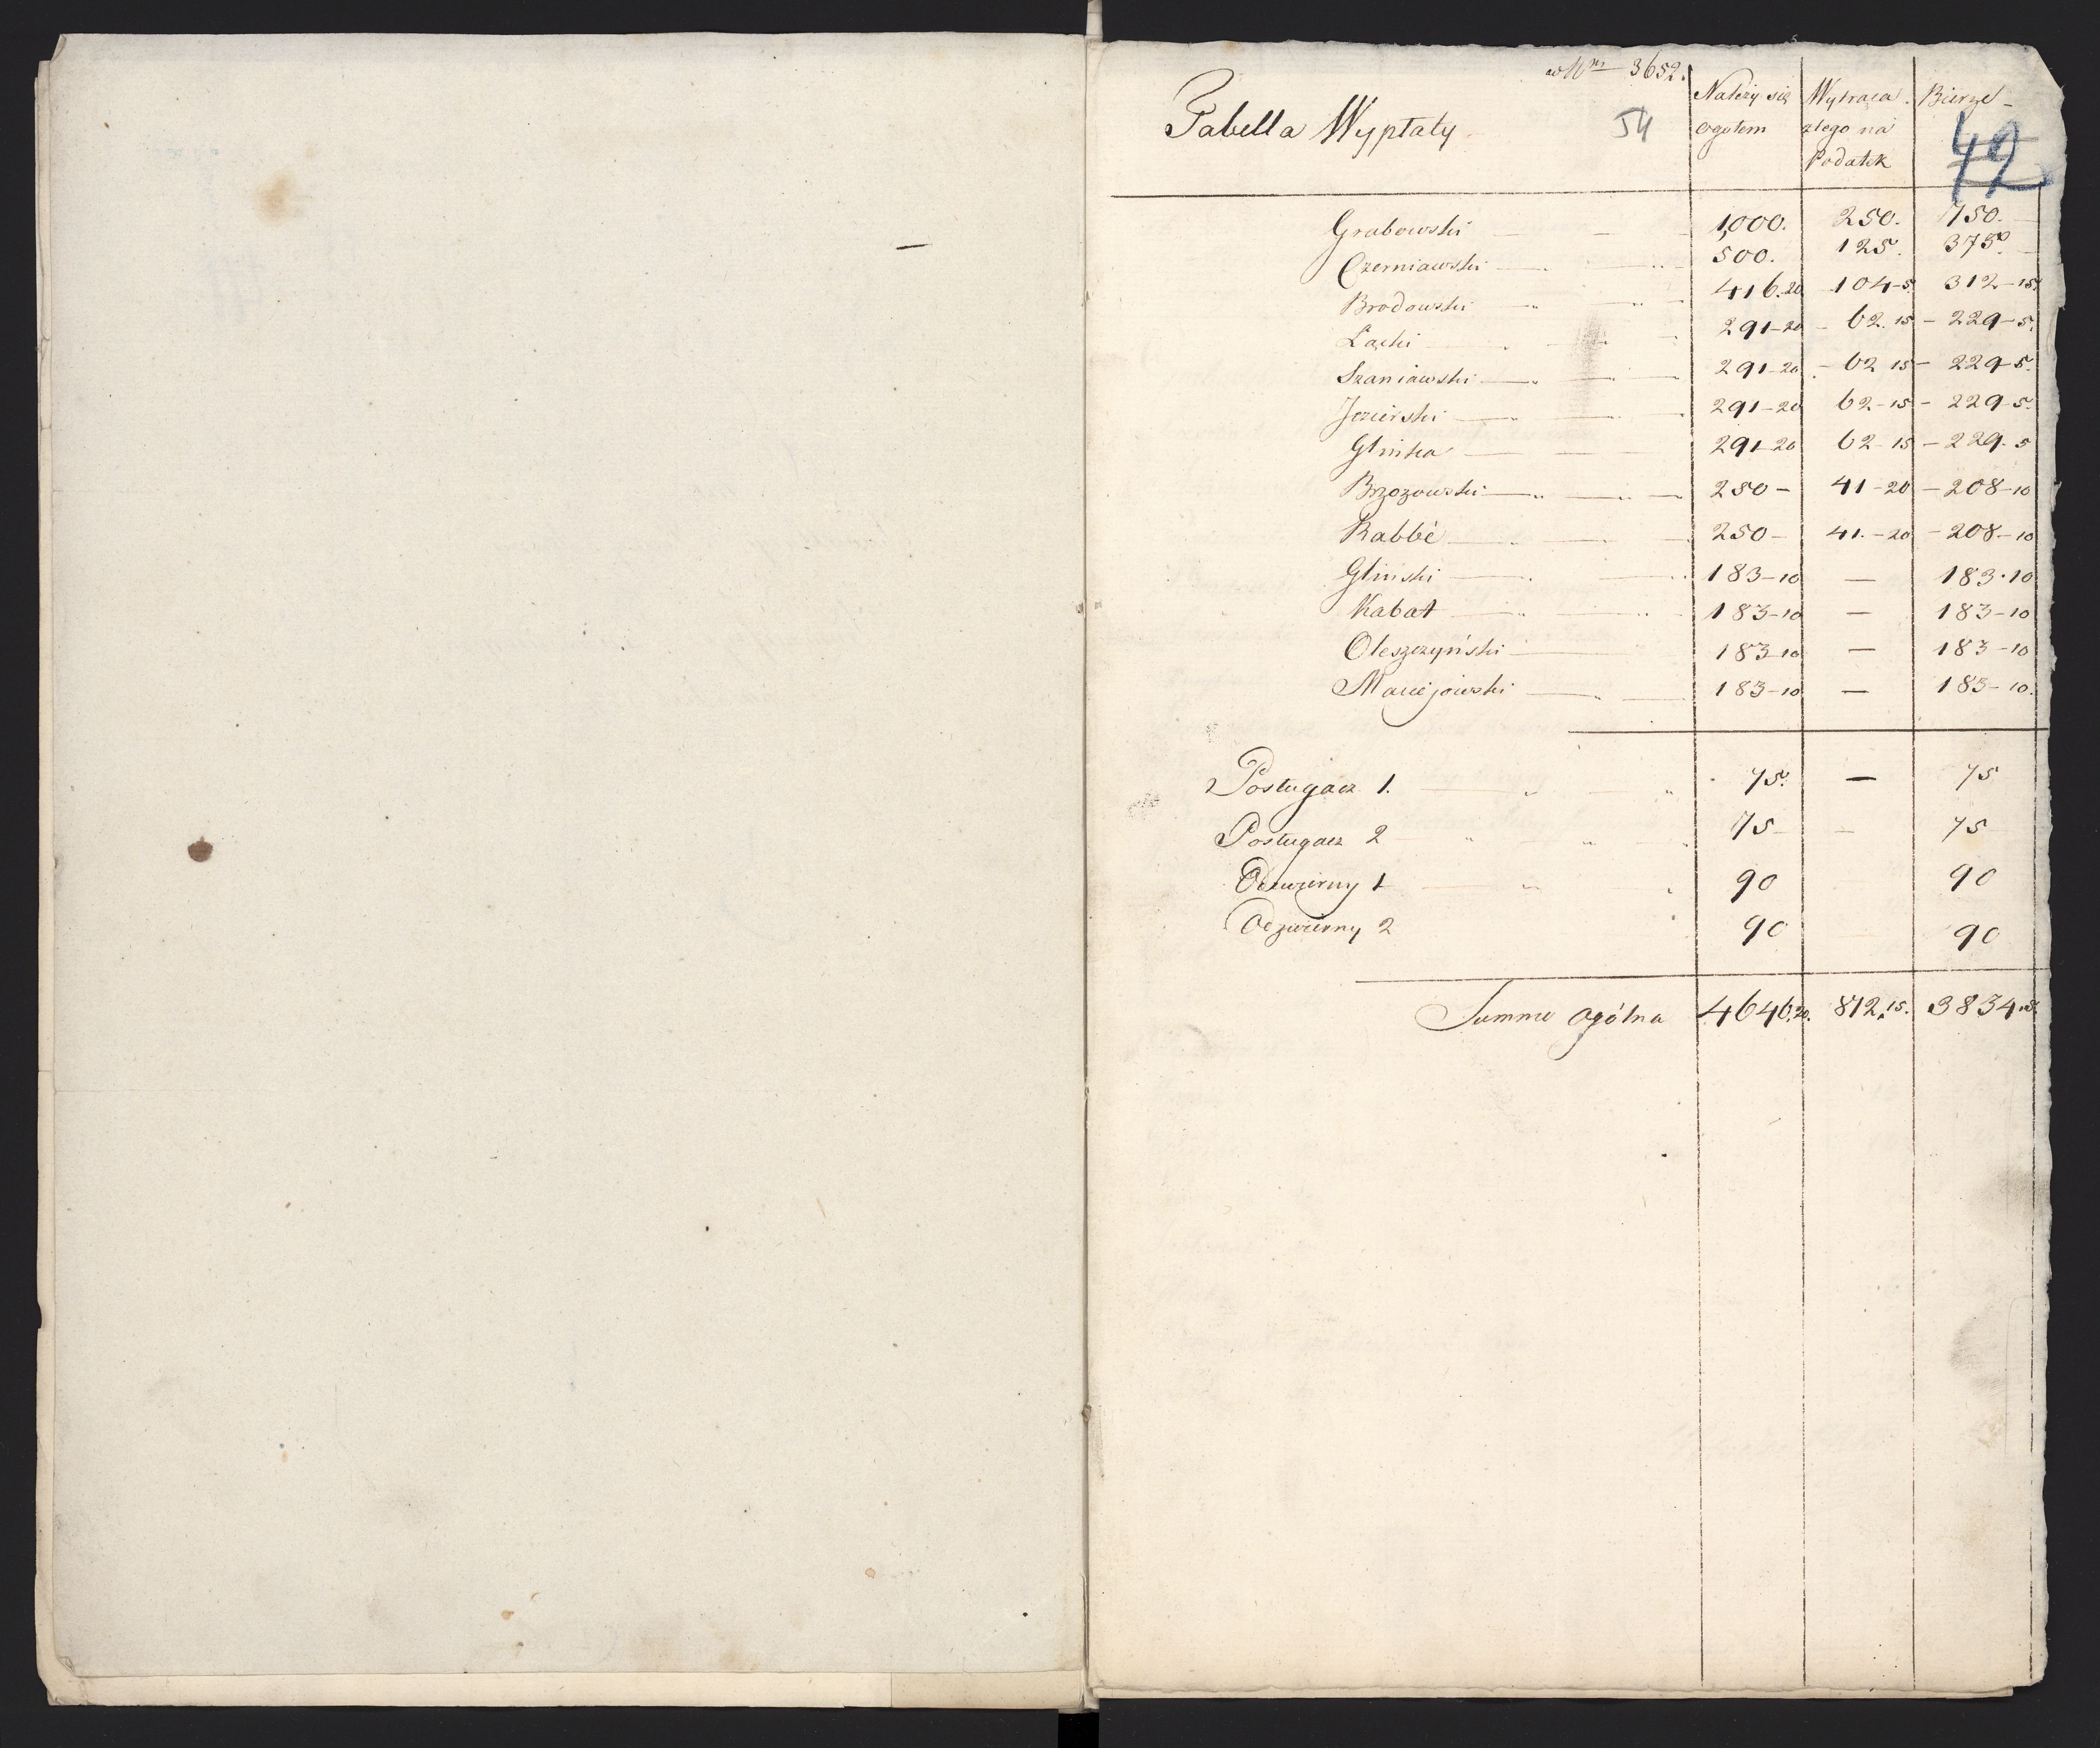 3652.
Tabella Wypłaty 54
Należy się ogółem
Wytrąca z tego na Podatek
Bierze
42
Grabowski 1,000. 250. 750.
Czerniawski 500. 125. 375.
Brodowski 416.20 104-5. 312-15.
Łącki 291-20 62.15 229-5.
Szaniawski 291-20 62 15 229-5.
Jezierski 291-20 62-15 229-5.
Glinka 291-20 62-15 229-5
Brzozowski 250- 41-20 208-10
Rabbé 250- 41.-20 208-10
Gliński 183-10 — 183.10
Kabat 183-10 — 183-10
Oleszczyński 183-10 — 183-10
Maciejowski 183-10 — 183-10.
Posługacz 1. 75. — 75
Posługacz 2 75 — 75
Odzwierny 1 90 90
Odzwierny 2 90 90
Summa Ogólna 4646.20. 812.15. 3834.